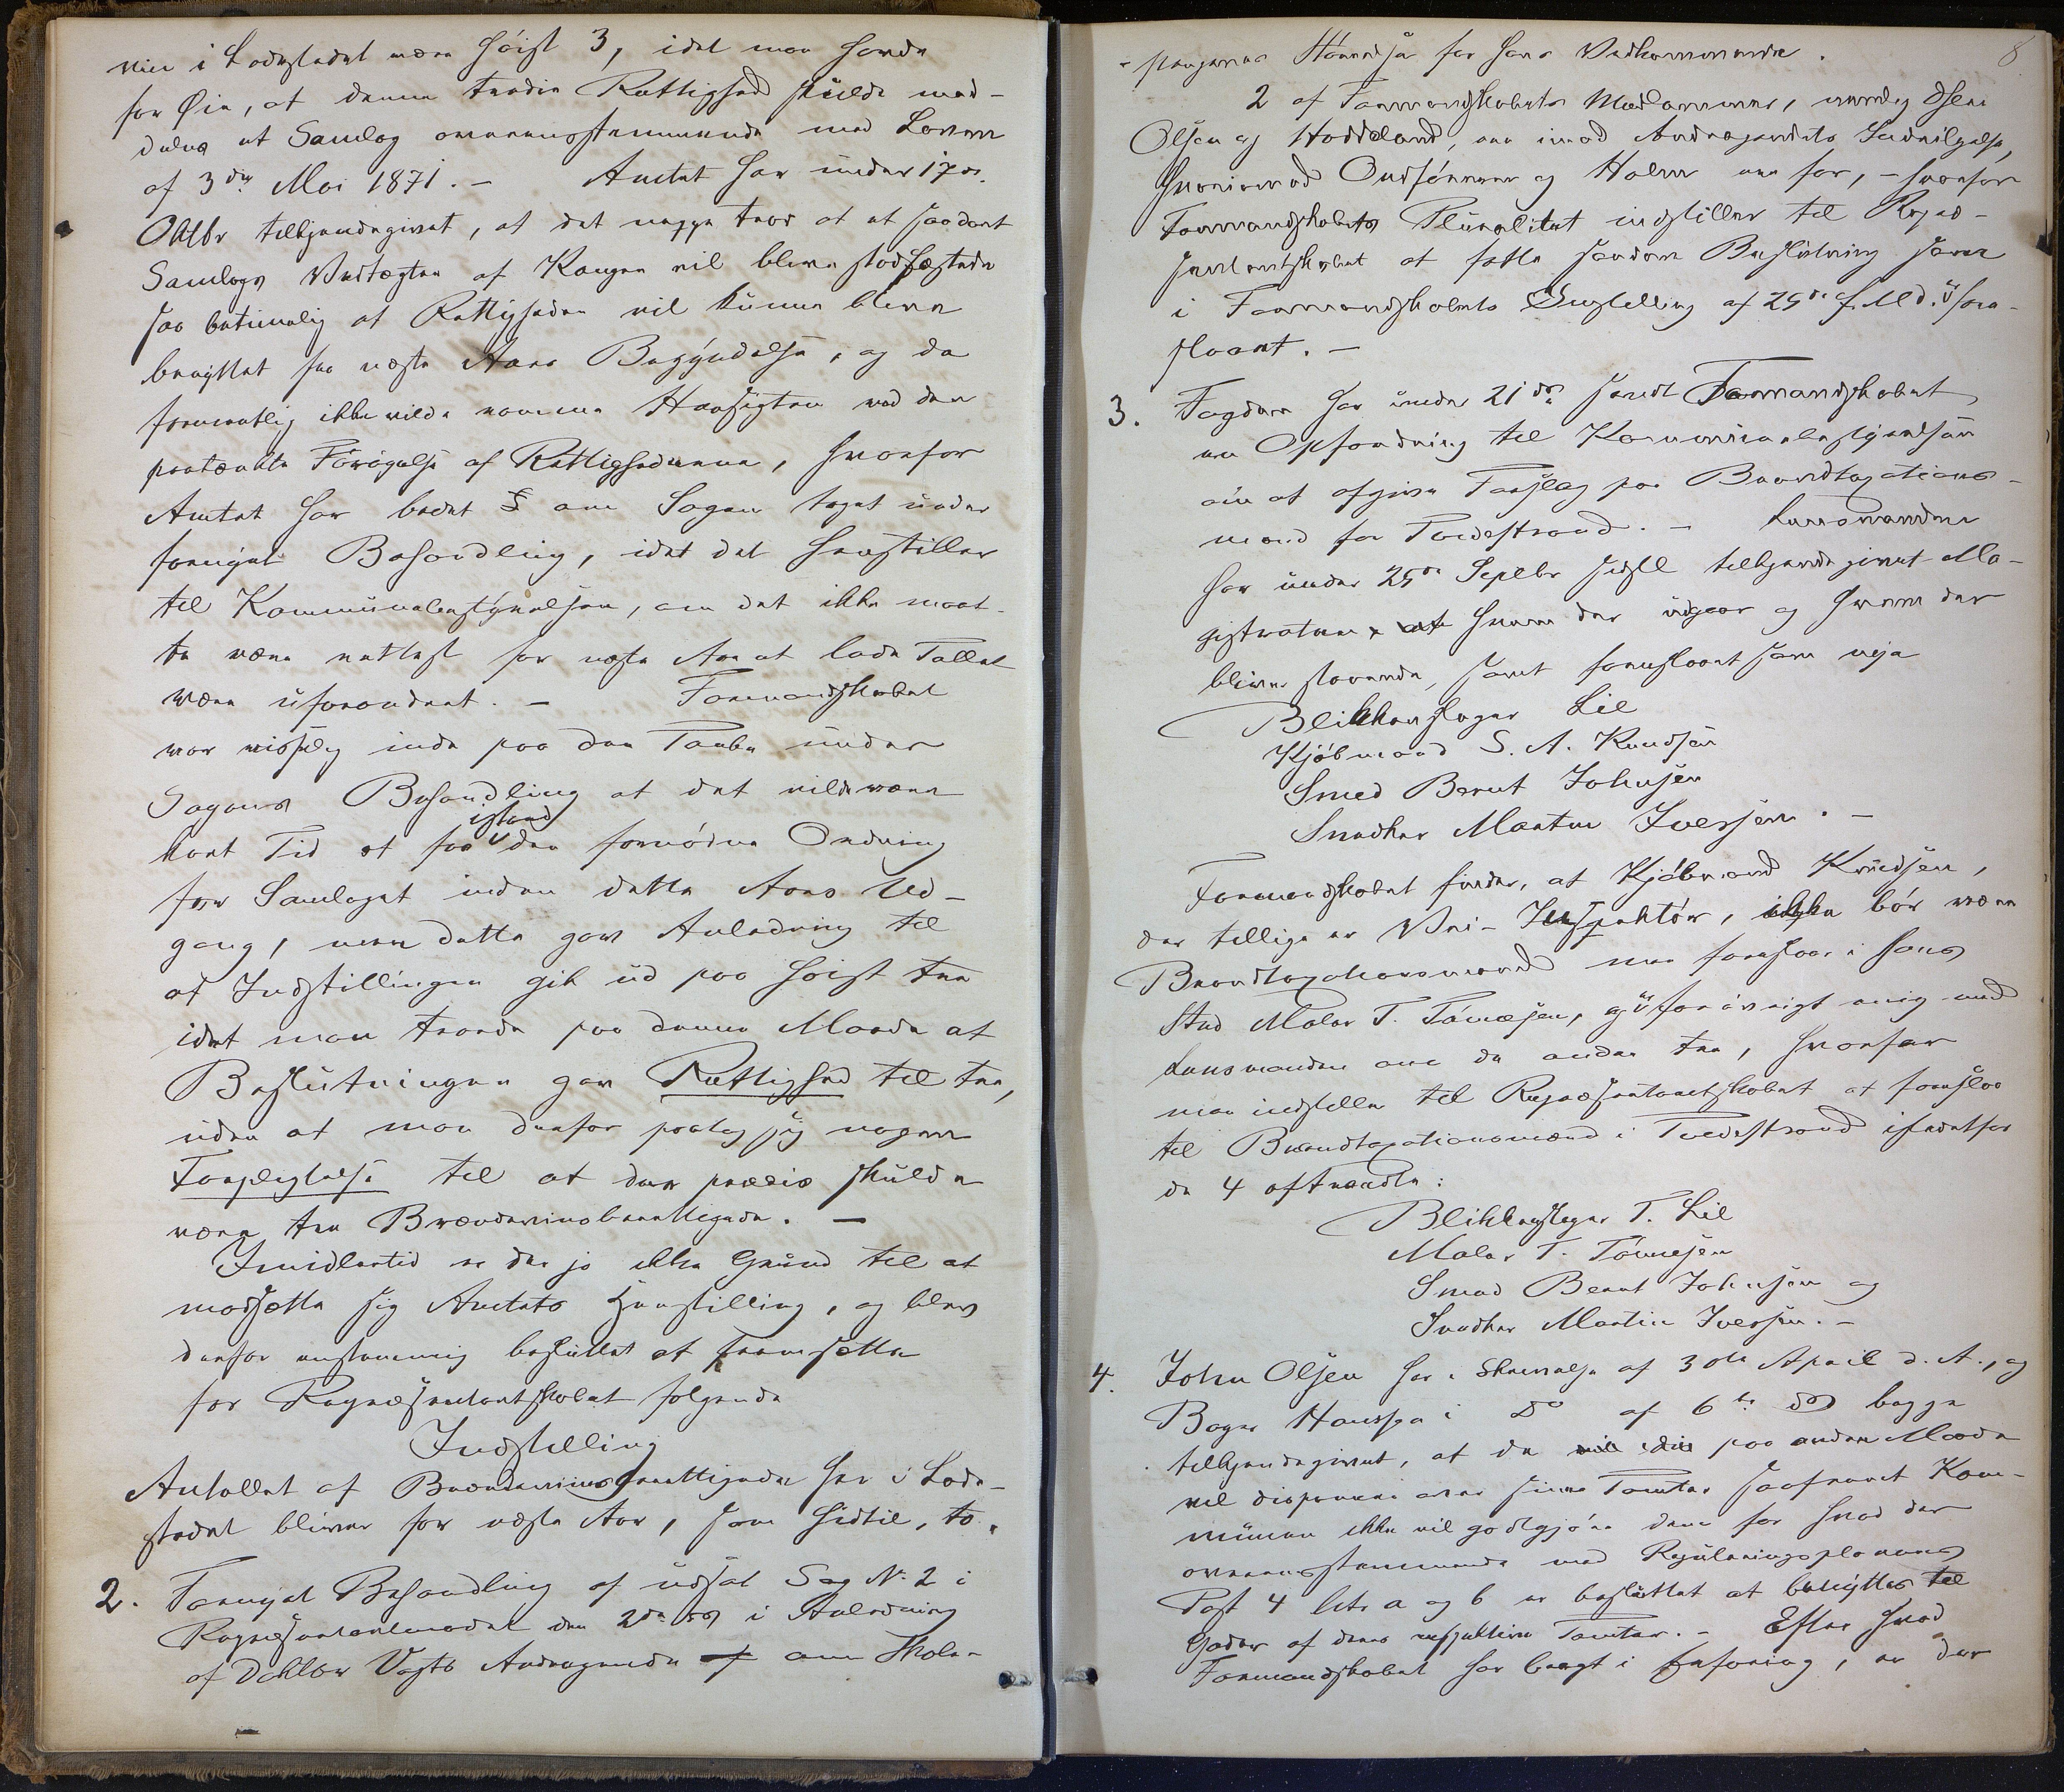 vin i Ladestedet være høist 3, idet man havde
for Øie, at denne tredie Rettighed skulde med-
deles et Samlag overensstemmende med Loven
af 3die Mai 1871. – Amtet har under 17de
Oktbr tilkjendegivet, at det neppe tror at et saadant
Samlags Vedtægter af Kongen vil blive stadfæstede
saa betimelig at Rettigheden vil kunne blive
benyttet fra næste Aars Begyndelse, og da
formentlig ikke vilde komme Hensigten med den
paatænkte Forøgelse af Rettighederne, hvorfor
Amtet har bedet § om Sagen taget under
fornyet Behandling, idet det henstiller
til Kommunalbestyrelsen, om det ikke maat-
te være rettest for næste Aar at lade Tallet
være uforandret. – Formandskabet
var visselig inde paa den Tanke under
Sagens Behandling at det vilde være
kort Tid at faa istand den fornødne Ordning
for Samlaget inden dette Aars Ud-
gang, men dette gav Anledning til
at Indstillingen gik ud paa høist tre
idet man troede paa denne Maade at
Beslutningen gav Rettighed til tre,
uden at man derfor paatog sig nogen
Forpligtelse til at der præcis skulde
være tre Brændevinsberettigede. –
Imidlertid er der jo ikke Grund til at
modsætte sig Amtets Henstilling, og blev
derfor enstemmig besluttet at fremsætte
for Repræsentantskabet følgende
Indstilling
Antallet af Brændevinsberettigede her i Lade-
stedet bliver for næste Aar, som hidtil, to.
2. Fornyet Behandling af udsat Sag No 2 i
Repræsentantmødet den 2den ds i Anledning
af Doktor Vogts Andragende af om Skole-
8
pengenes Størrelse for hans Vedkommende.
2 af Formandskabets Medlemmer, nemlig Osten
Olsen og Hoddeland, var imod Andragendets Indvilgelse,
hvorimod Ordføreren og Holm var for, – hvorfor
Formandskabets Pluralitet indstiller til Repræ-
sentantskabet at fatte saadan Beslutning som
i Formandskabets Indstilling af 25de f. Md. fore-
slaaet. –
3. Fogden har under 21de sendt Formandskabet
en Opfordring til Kommunalbestyrelsen
om at afgive Forslag paa Brandtaxations-
mænd for Tvedestrand. – Lensmanden
har under 25de Septbr sidstl tilkjendegivet Ma-
gistraten, at hvem der udgaar og hvem der
bliver staaende, samt foreslaaet som nye
Blikkenslager Lie
Kjøbmand S. A. Knudsen
Smed Bernt Johnsen
Snedker Martin Iversen. –
Formandskabet finder, at Kjøbmand Knudsen,
der tillige er Vei-Inspektør, ikke bør være
Brandtaxationsmand men foreslaar i hans
Sted Maler T. Tømesen, og er forøvrigt enig med
Lensmanden om de andre tre, hvorfor
man indstiller til Repræsentantskabet at foreslaa
til Brandtaxationsmænd i Tvedestrand istedetfor
de 4 aftrædte:
Blikkenslager T. Lie
Maler T. Tømesen
Smed Bernt Johnsen og
Snedker Martin Iversen. –
4. John Olsen har i Skrivelse af 30te April d. A., og
Bager Hanssen i Do af 6te ds begge
tilkjendegivet, at de paa anden Maade
vil disponere over sine Tomter saafremt Kom-
munen ikke vil godtgjøre dem for hvad der
overensstemmende med Reguleringsplanens
Post 4 litr a og b er besluttet at benyttes til
Gader af deres respektive Tomter. – Efter hvad
Formandskabet har bragt i Erfaring, er der